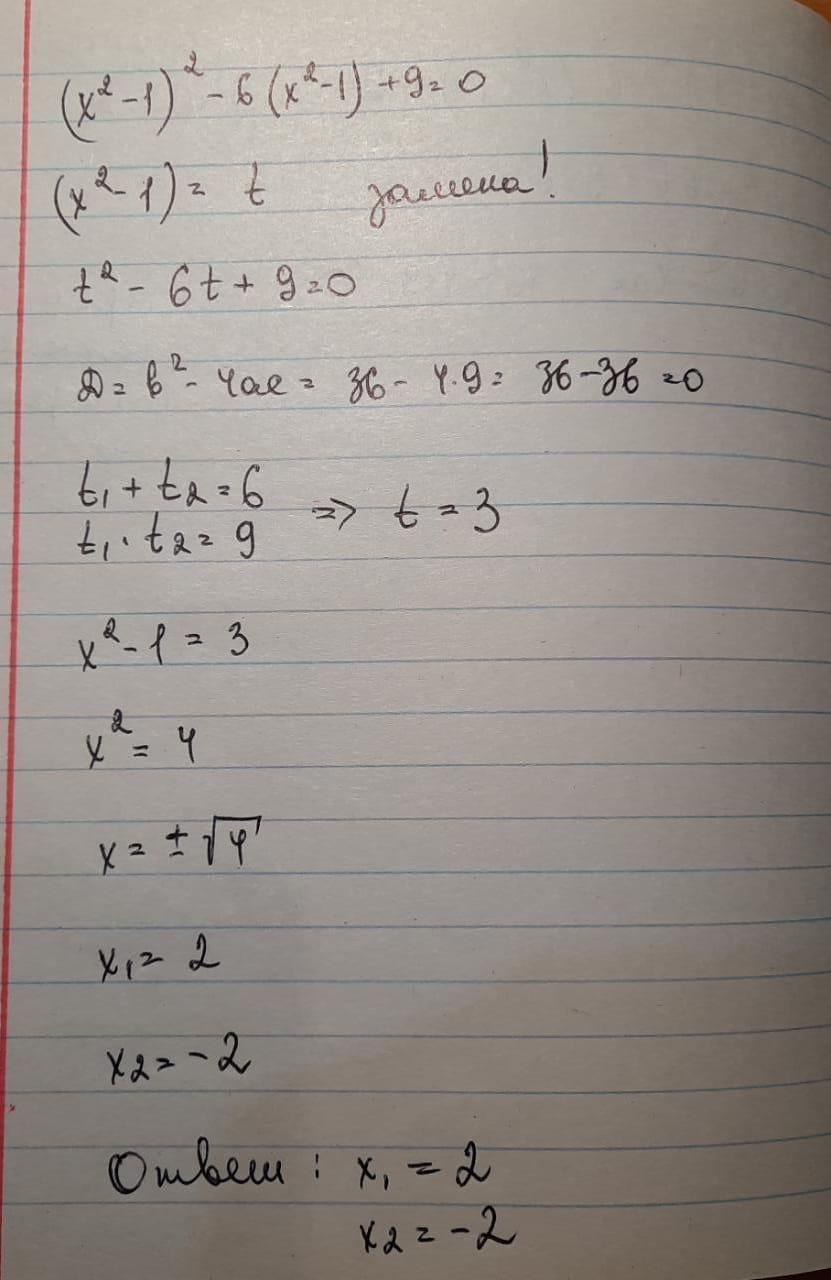 (x²-1)² - 6(x²-1) + 9 = 0
(x²-1) = t замена!
t² - 6t + 9 = 0
D = b² - 4ac = 36 - 4·9 = 36 - 36 = 0
t₁ + t₂ = 6
t₁ · t₂ = 9 ⇒ t = 3
x² - 1 = 3
x² = 4
x = ±√4
x₁ = 2
x₂ = -2
Ответ: x₁ = 2
x₂ = -2